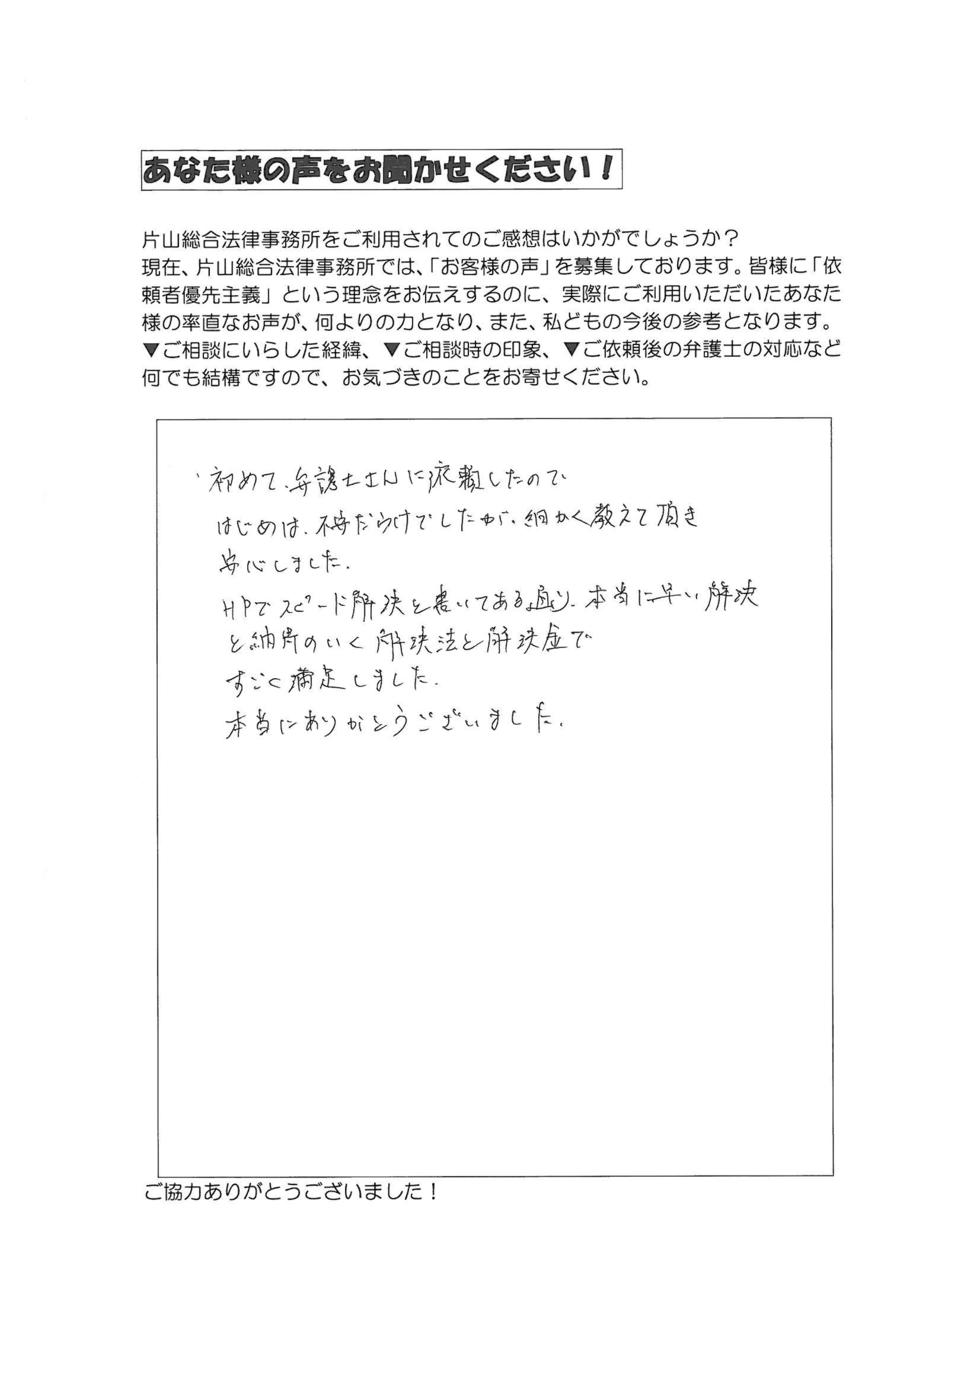 あなた様の声をお聞かせください！
片山総合法律事務所をご利用されてのご感想はいかがでしょうか？
現在、片山総合法律事務所では、「お客様の声」を募集しております。皆様に「依
頼者優先主義」という理念をお伝えするのに、実際にご利用いただいたあなた
様の率直なお声が、何よりの力となり、また、私どもの今後の参考となります。
▼ご相談にいらした経緯、▼ご相談時の印象、▼ご依頼後の弁護士の対応など
何でも結構ですので、お気づきのことをお寄せください。
初めて、弁護士さんに依頼したので
はじめは、不安だらけでしたが、細かく教えて頂き
安心しました.
HPでスピード解決と書いてある通り、本当に早い解決
と納得のいく解決法と解決金で
すごく満足しました.
本当にありがとうございました.
ご協力ありがとうございました！